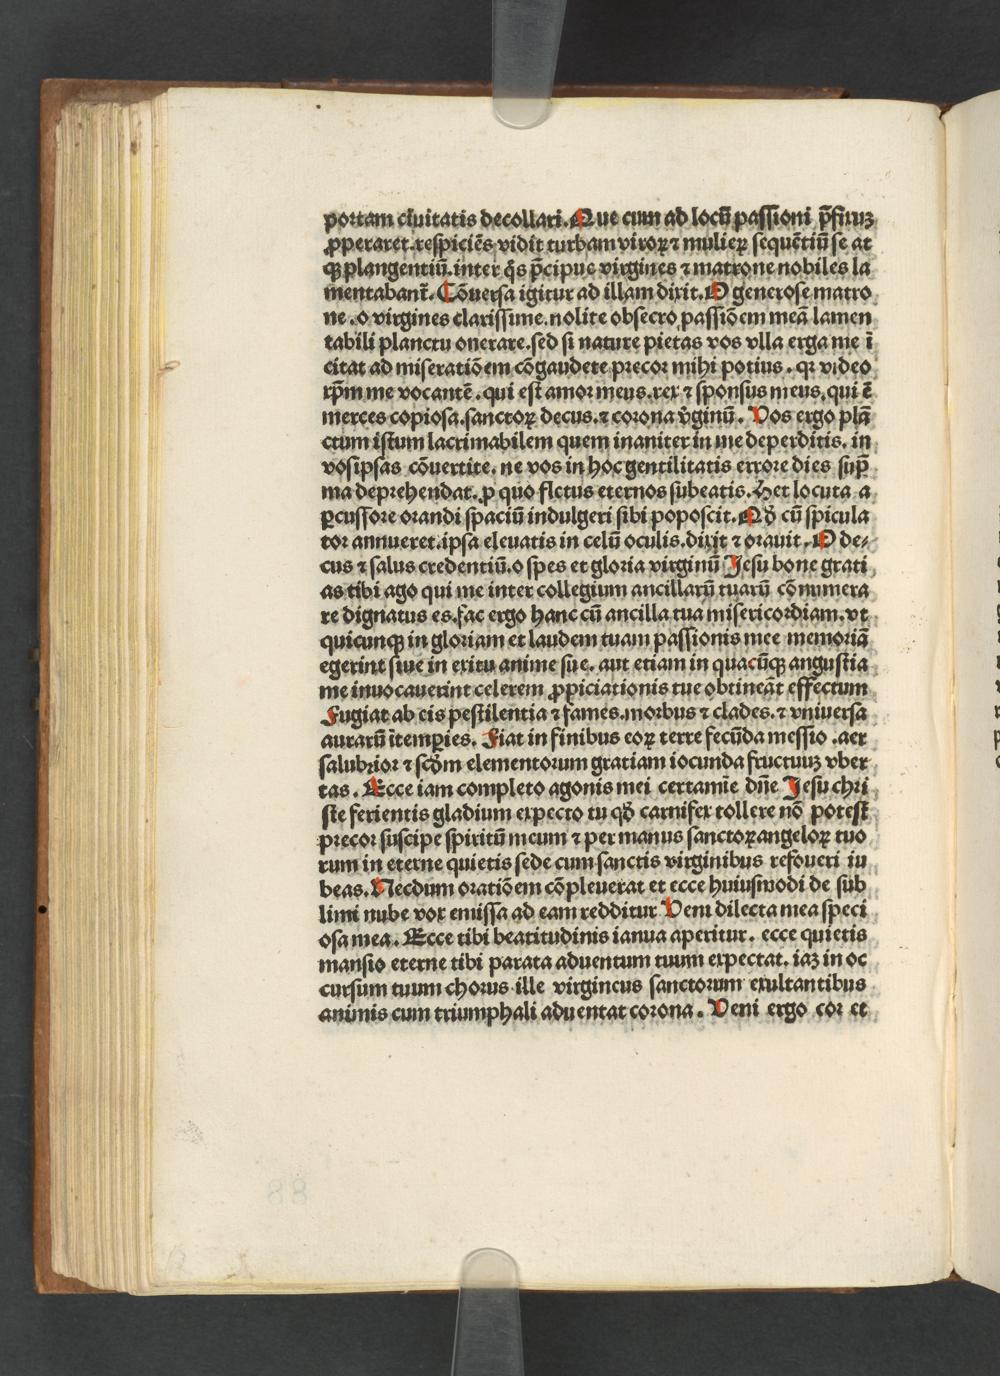 portam ciuitatis decollari. Que cum ad locū passioni p̄fixuʒ
ꝓperaret. respiciēs vidit turbam viroꝝ ⁊ mulieꝝ sequētiū se at
qꝫ plangentiū. inter q̄s p̄cipue virgines ⁊ matrone nobiles la
mentabant̄. Cōuersa igitur ad illam dixit. O generose matro
ne. o virgines clarissime. nolite obsecro passiōem meā lamen
tabili planctu onerare. sed si nature pietas vos vlla erga me ī
citat ad miseratiōem cōgaudete precor mihi potius. qꝛ video
xp̄m me vocantē. qui est amor meus. rex ⁊ sponsus meus, qui ē
merces copiosa. sanctoꝝ decus. ⁊ corona v̄ginū. Vos ergo plā
ctum istum lacrimabilem quem inaniter in me deperditis. in
vosipsas cōuertite. ne vos in hoc gentilitatis errore dies sup̄
ma deprehendat. p quo fletus eternos subeatis. Het locuta a
ꝑcussore orandi spaciū indulgeri sibi poposcit. Qđ cū spicula
tor annueret. ipsa eleuatis in celū oculis. dixit ⁊ orauit. O de⸗
cus ⁊ salus credentiū. o spes et gloria virginū Jesu bone grati
as tibi ago qui me inter collegium ancillarū tuarū cōnumera
re dignatus es. fac ergo hanc cū ancilla tua misericordiam. vt
quicunqꝫ in gloriam et laudem tuam passionis mee memoriā
egerint siue in exitu anime sue. aut etiam in quacūqꝫ angustia
me inuocauerint celerem ꝓpiciationis tue obtineāt effectum
Fugiat ab eis pestilentia ⁊ fames. morbus ⁊ clades. ⁊ vniuersa
aurarū ītemperies. Fiat in finibus eoꝝ terre fecūda messio. aer
salubrior ⁊ scđm elementorum gratiam iocunda fructuuʒ vber
tas. Ecce iam completo agonis mei certamīe dn̄e Jesu chri
ste ferientis gladium expecto tu qđ carnifex tollere nō potest
precor suscipe spiritū meum ⁊ per manus sanctoꝝ angeloꝝ tuo
rum in eterne quietis sede cum sanctis virginibus refoueri iu
beas. Necdum oratiōem cōpleuerat et ecce huiusmodi de sub
limi nube vox emissa ad eam redditur Veni dilecta mea speci
osa mea. Ecce tibi beatitudinis ianua aperitur. ecce quietis
mansio eterne tibi parata aduentum tuum expectat. iaʒ in oc
cursum tuum chorus ille virgineus sanctorum exultantibus
animis cum triumphali aduentat corona. Veni ergo cor et